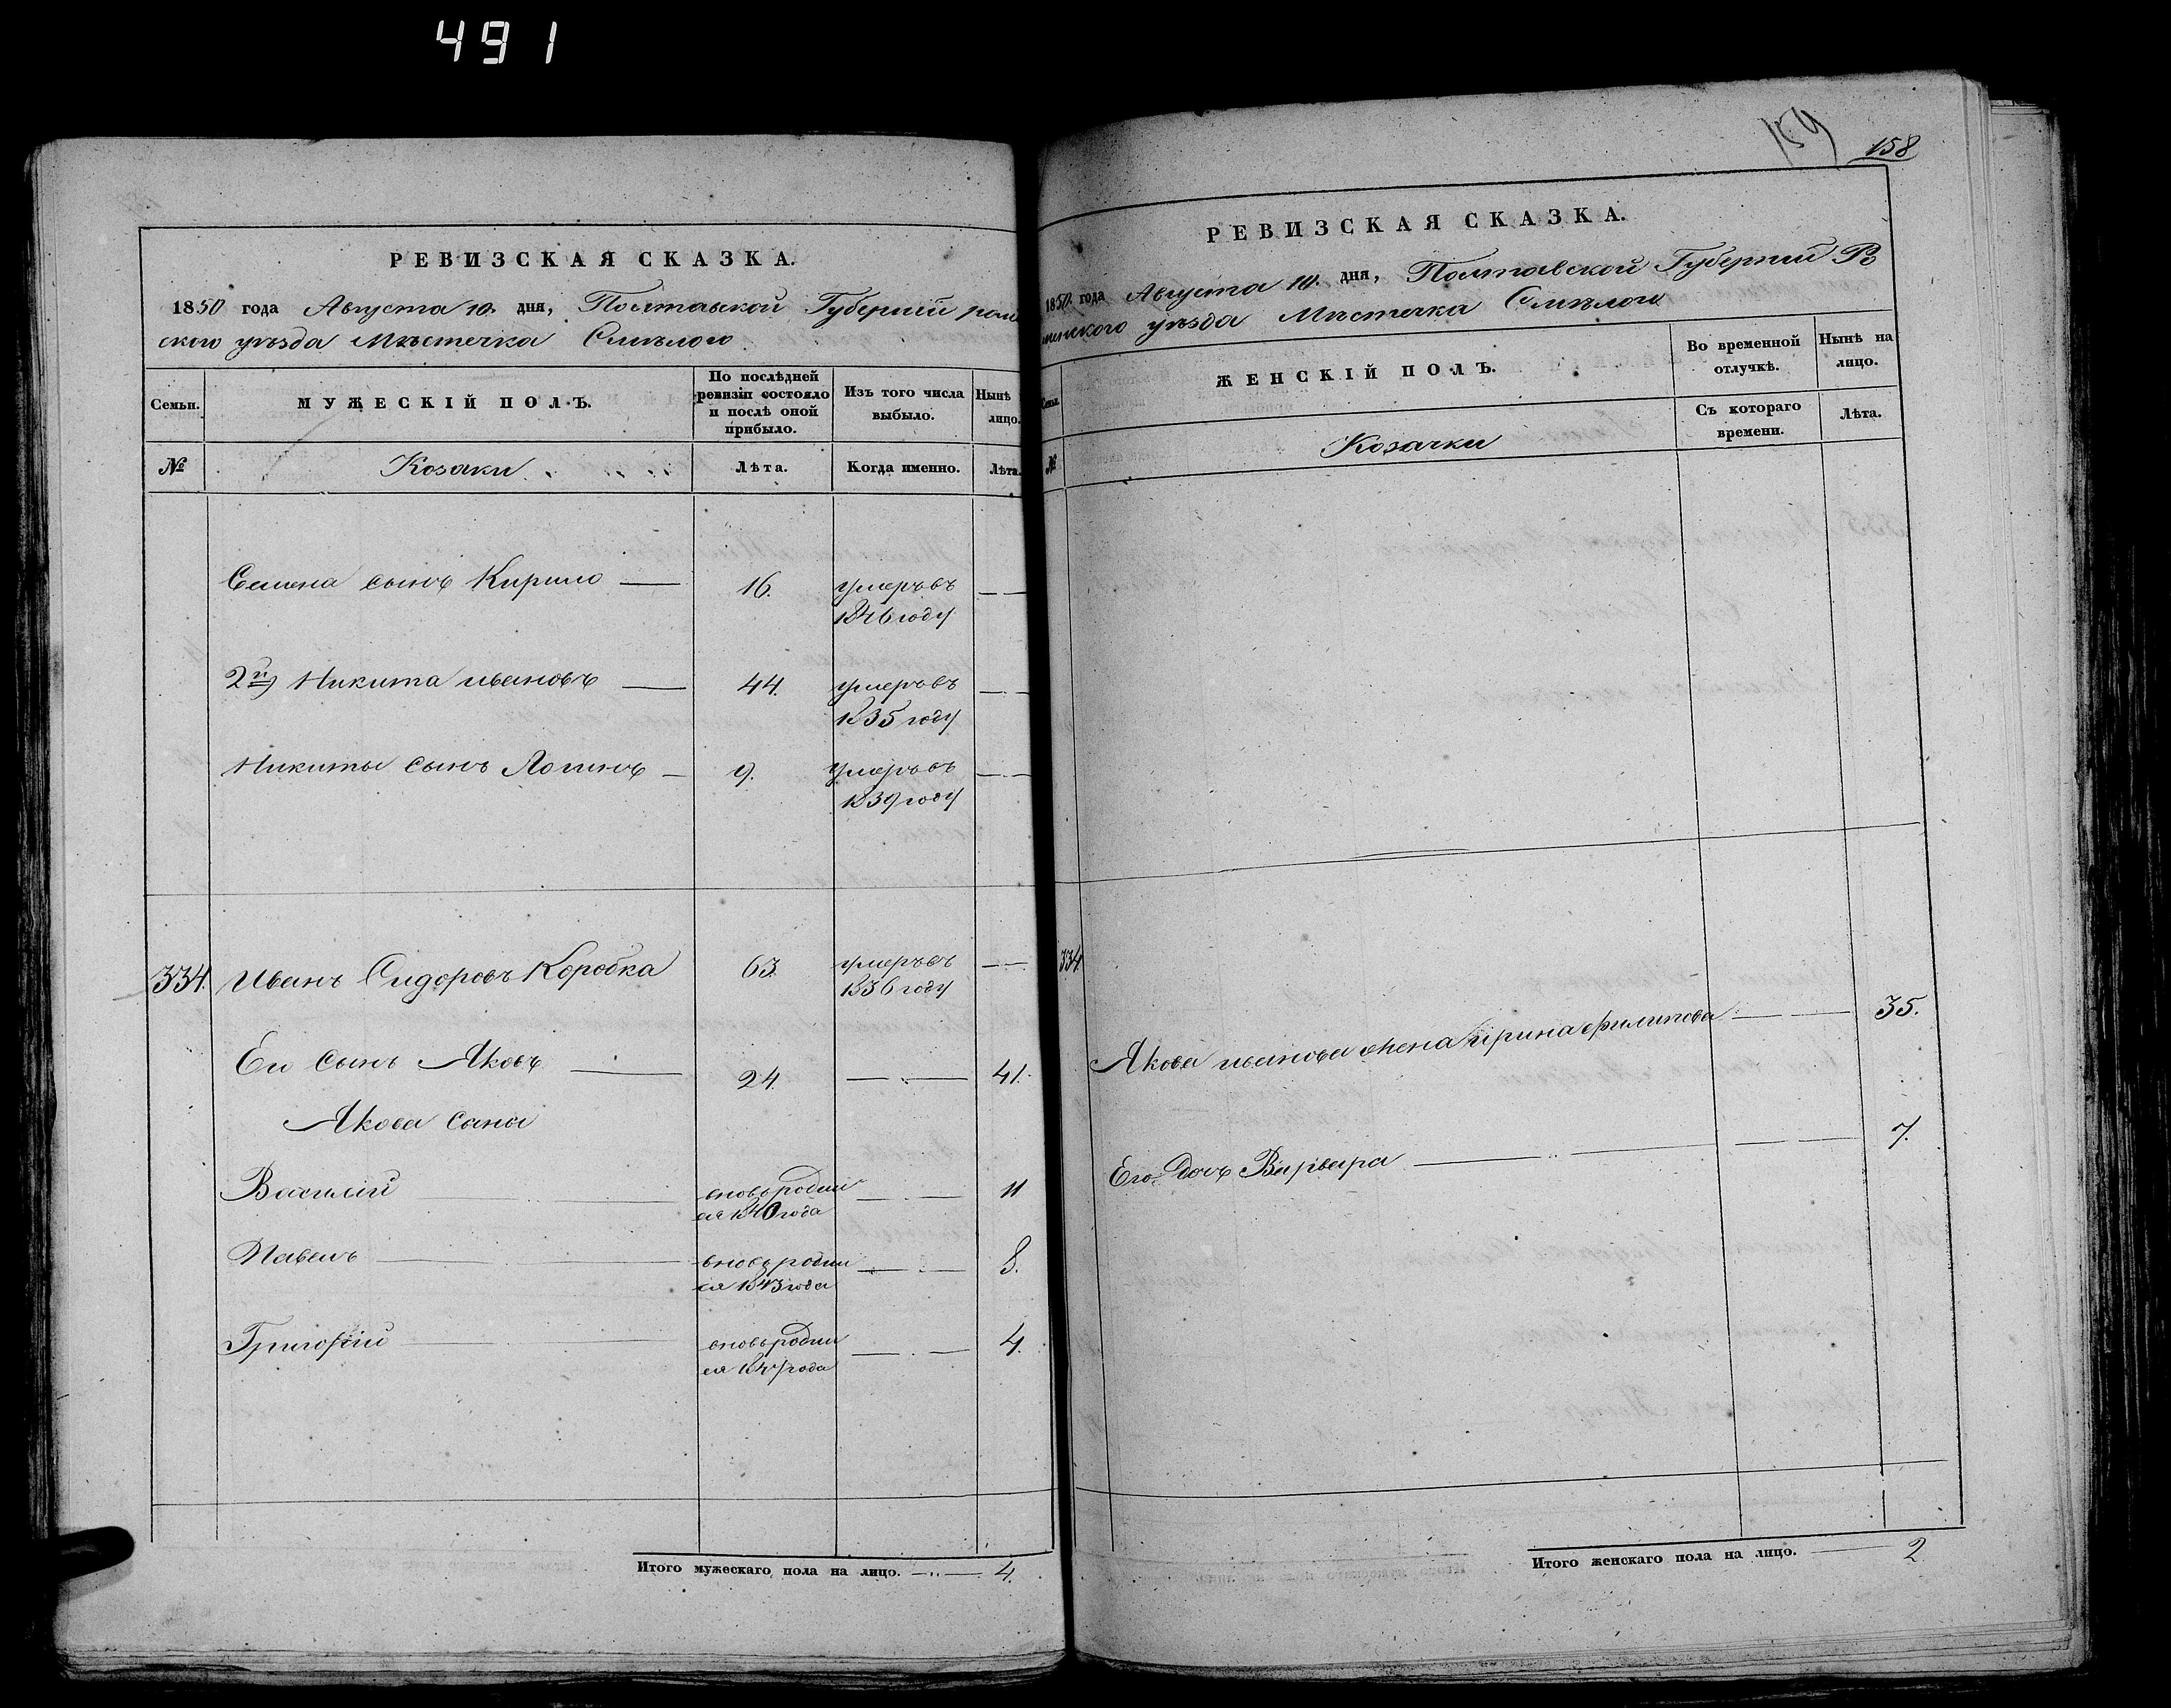 491
РЕВИЗСКАЯ СКАЗКА.
1850 года Августа 10. дня, Полтавской Губерніи ромен
ского уѣзда Мѣстечка Смѣлого
Семьи.
МУЖЕСКІЙ ПОЛЪ.
По послѣдней
ревизіи состояло
и послѣ оной
прибыло.
Изъ того числа
выбыло.
Нынѣ
лицо.
№
Козаки
Лѣта.
Когда именно.
Лѣта.
Семена сынъ Кирило 16. умеръ въ
1846 году
2й Никита ивановъ 44. умеръ въ
1835 году
Никиты сынъ Логинъ 9. умеръ въ
1839 году
334. Иванъ Сидоровъ Коробка 63. умеръ въ
1836 году
Ево сынъ Яковъ 24. 41.
Якова сыны
Василий вновь родил 11
ся 1840 года
Павелъ вновь родил 8.
ся 1843 года
Григорій вновь родил 4.
ся 1847 года
Итого мужескаго пола на лицо. 4.
159
158
РЕВИЗСКАЯ СКАЗКА.
1850. года Августа 10. дня, Полтавской Губерніи Ро
менского уѣзда Мѣстечка Смѣлого
Семьи.
ЖЕНСКІЙ ПОЛЪ.
Во временной
отлучкѣ.
Нынѣ на
лицо.
№
Козачки
Съ котораго
времени.
Лѣта.
334
Якова иванова жена Ирина филипова 35.
Его Дочь Варвара 7.
Итого женскаго пола на лицо. 2